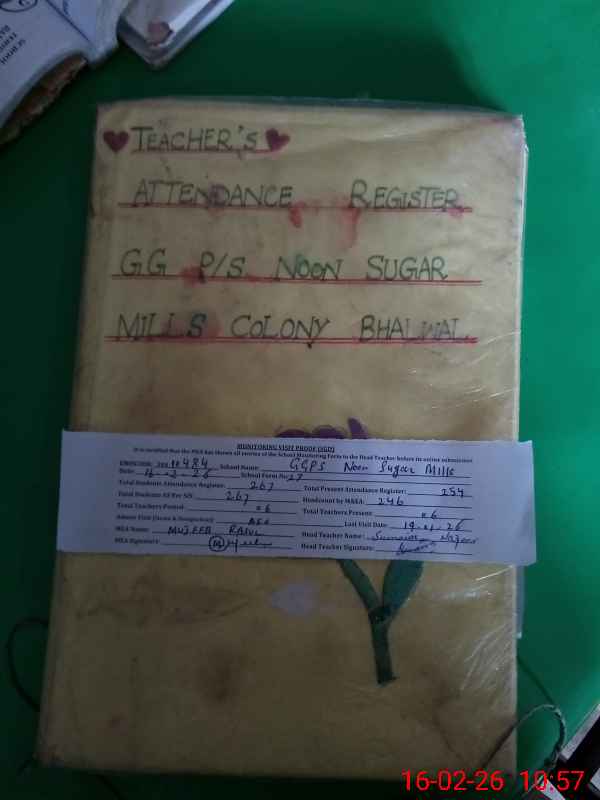 TEACHER'S
ATTENDANCE REGISTER
GG P/S NOON SUGAR
MILLS COLONY BHALWAL
MONITORING VISIT PROOF (SGD)
It is certified that the MEA has shown all entries of the School Monitoring Form to the Head Teacher before its online submission
School Name: GGPS Noon Sugar Mills
Date: 16-2-26 School Form No: 27
Total Students Attendance Register: 267 Total Present Attendance Register: 254
Total Students All Per 267 Headcount by MEAs: 246
Total Teachers Posted: 06 Total Teachers Present: 06
Admin Visit (Name & Designation): AEO Last Visit Date: 19
MEA Name: MUJEEB Head Teacher Name:
MEA Signature: Head Teacher Signature:
16-02-26 10:57